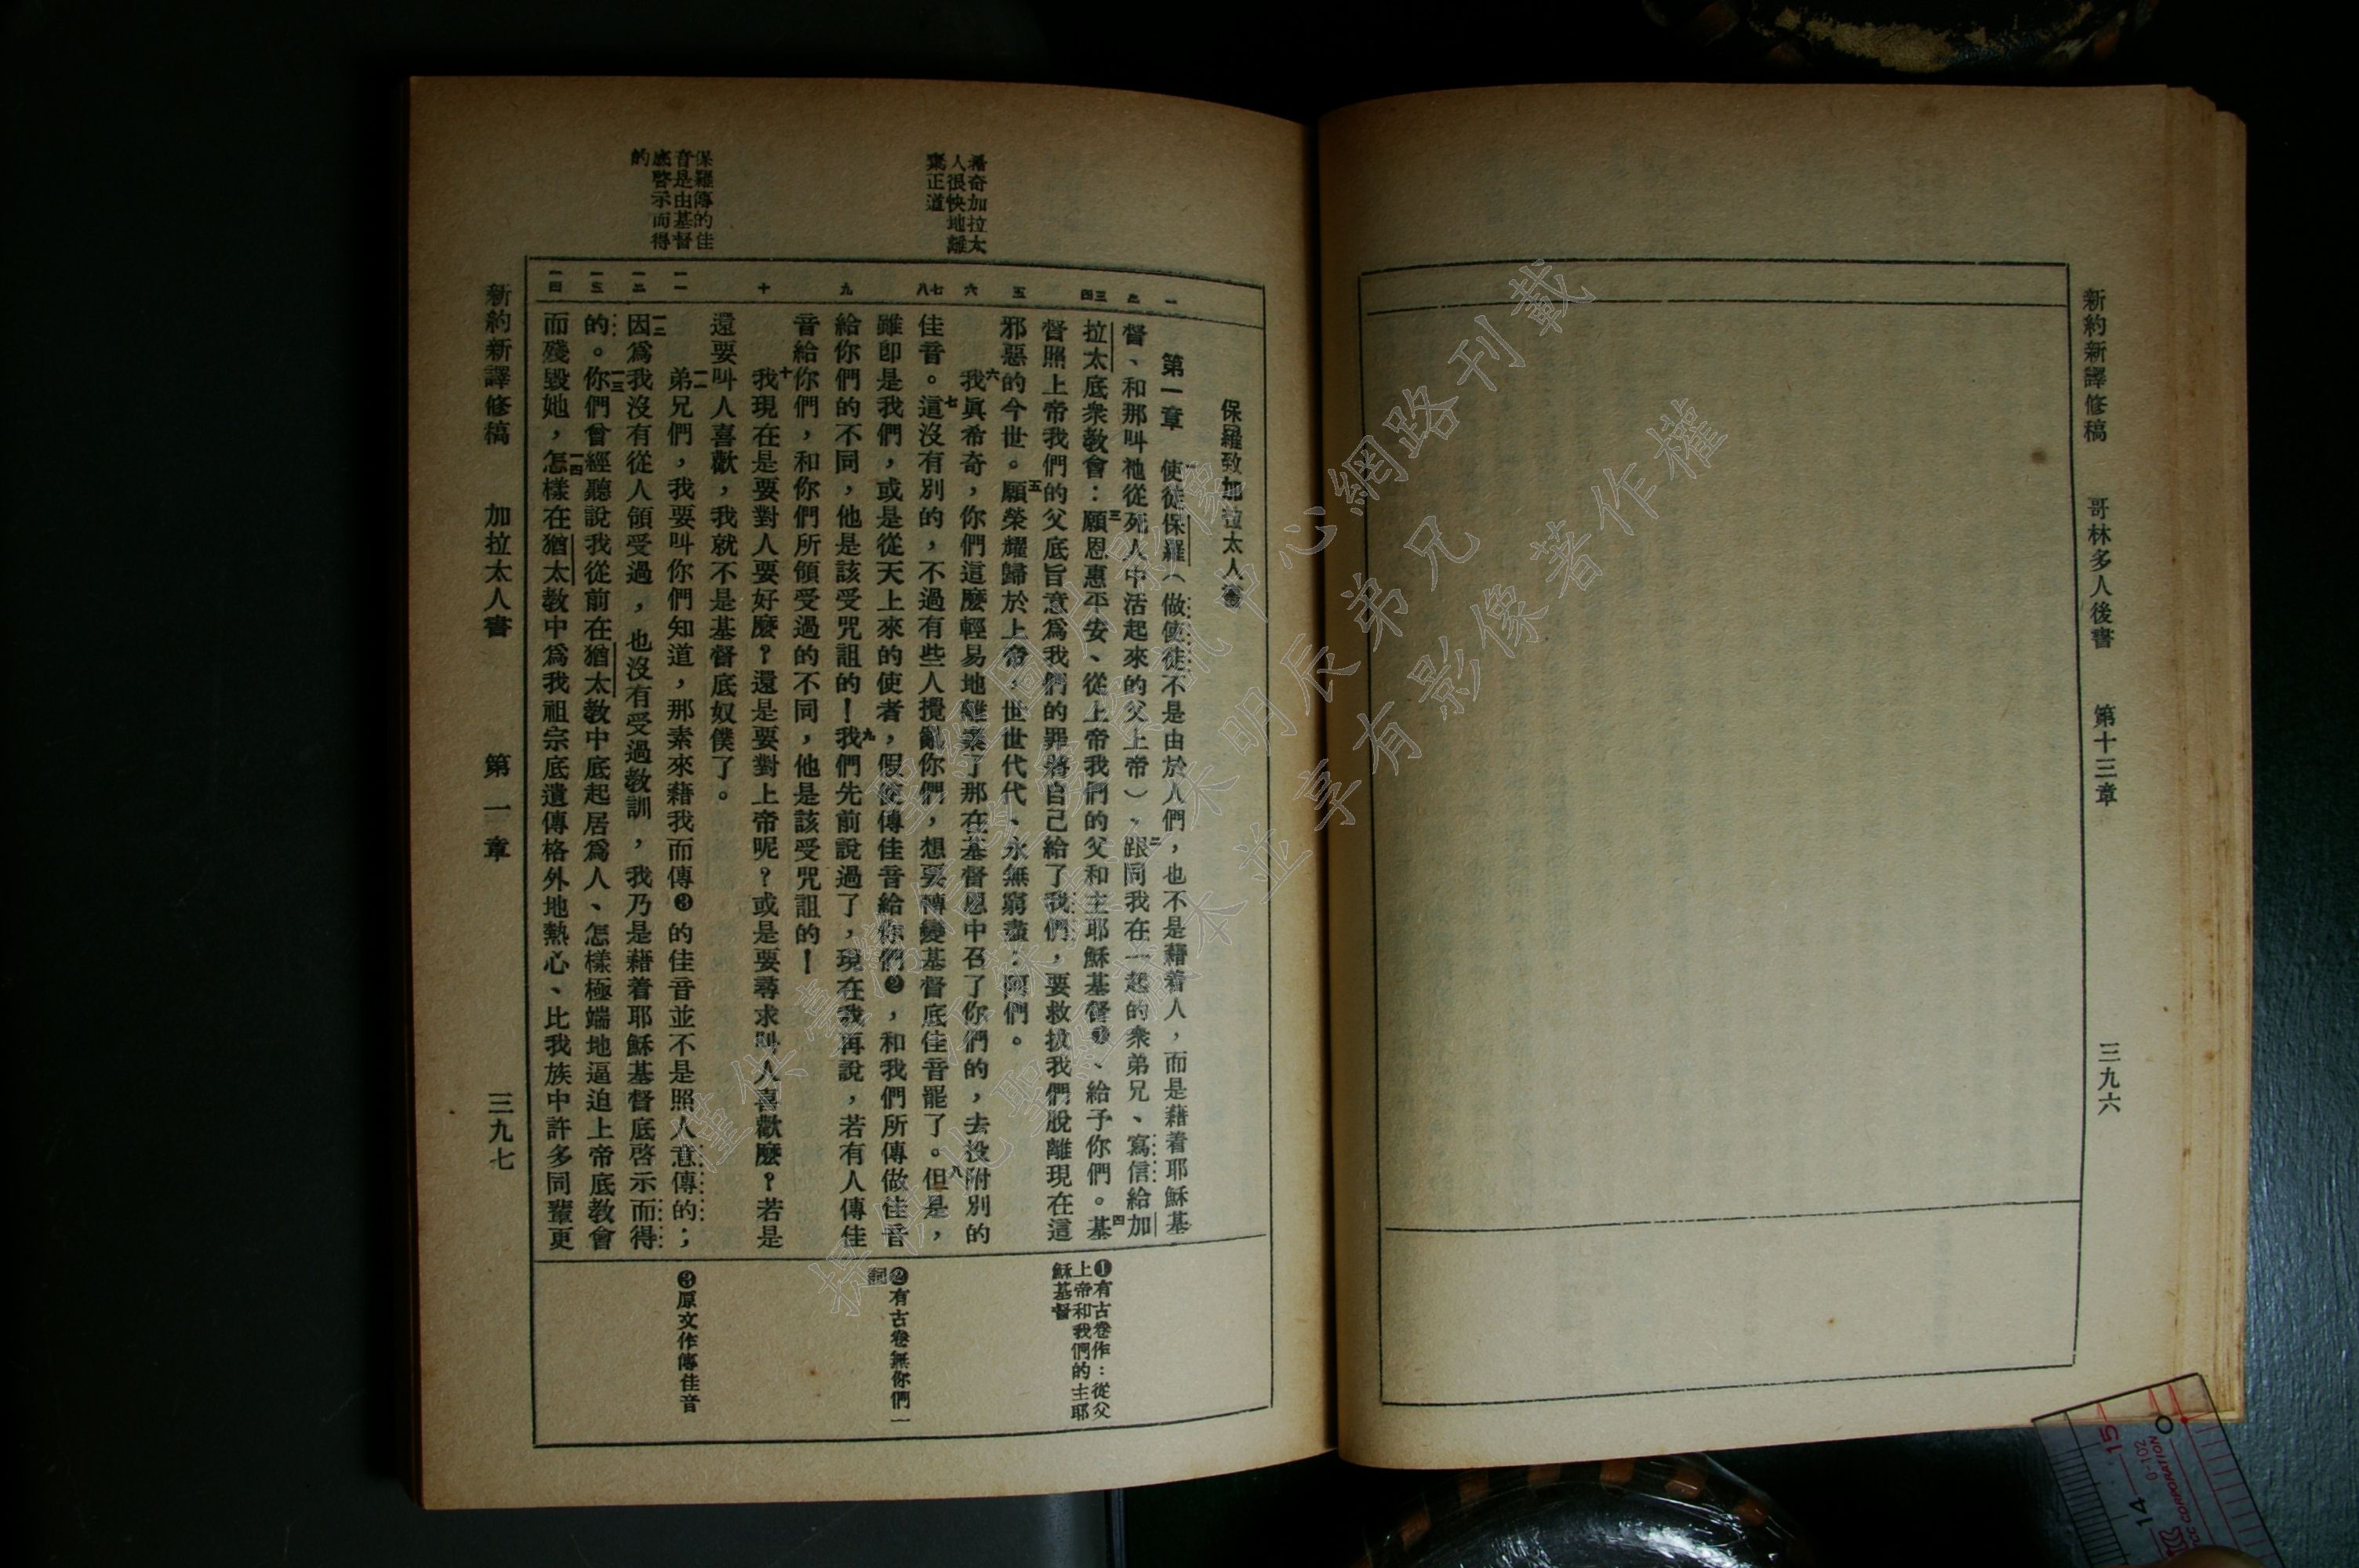 新約新譯修稿　哥林多人後書　第十三章　三九六
希奇加拉太
人很快地離
棄正道
保羅傳的佳
音是由基督
底啓示而得
的
一
二
三四
五
六
七八
九
十
一一
一二
一三
一四
保羅致加拉太人書
第一章　使徒保羅（做使徒不是由於人們，也不是藉着人，而是藉着耶穌基
督、和那叫祂從死人中活起來的父上帝）、二跟同我在一起的衆弟兄、寫信給加
拉太底衆教會：三願恩惠平安、從上帝我們的父和主耶穌基督❶、給予你們。四基
督照上帝我們的父底旨意爲我們的罪將自己給了我們，要救拔我們脫離現在這
邪惡的今世。五願榮耀歸於上帝，世世代代、永無窮盡：阿們。
六我眞希奇，你們這麼輕易地離棄了那在基督恩中召了你們的，去投附別的
佳音。七這沒有別的，不過有些人攪亂你們，想要轉變基督底佳音罷了。八但是，
雖卽是我們，或是從天上來的使者，假使傳佳音給你們❷，和我們所傳做佳音
給你們的不同，他是該受咒詛的！九我們先前說過了，現在我再說，若有人傳佳
音給你們，和你們所領受過的不同，他是該受咒詛的！
十我現在是要對人要好麼？還是要對上帝呢？或是要尋求叫人喜歡麼？若是
還要叫人喜歡，我就不是基督底奴僕了。
一一弟兄們，我要叫你們知道，那素來藉我而傳❸的佳音並不是照人意傳的；
一二因爲我沒有從人領受過，也沒有受過教訓，我乃是藉着耶穌基督底啓示而得
的。一三你們曾經聽說我從前在猶太教中底起居爲人、怎樣極端地逼迫上帝底教會
而殘毀她，一四怎樣在猶太教中爲我祖宗底遺傳格外地熱心、比我族中許多同輩更
❶有古卷作：從父
上帝和我們的主耶
穌基督
❷有古卷無你們一
詞
❸原文作傳佳音
新約新譯修稿　加拉太人書　第一章　三九七